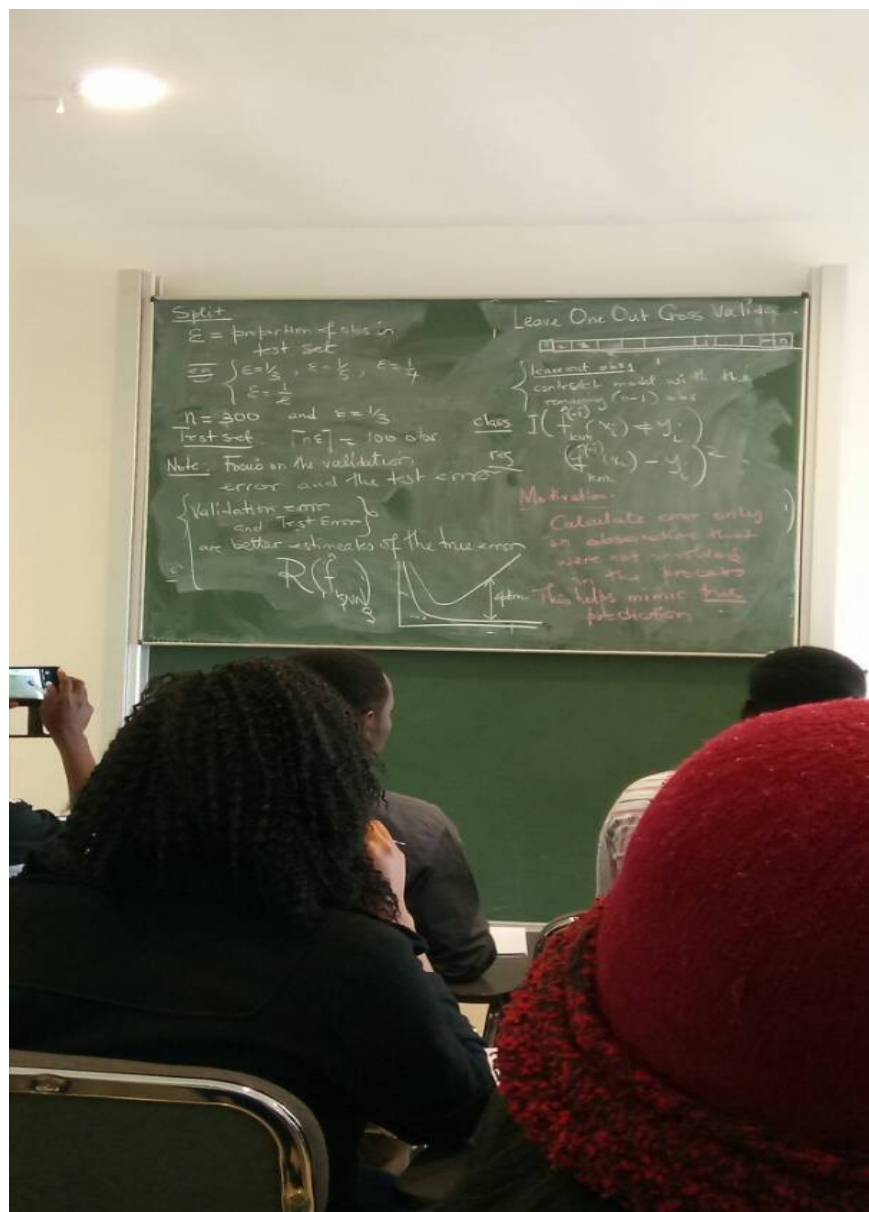 Split
ε = proportion of obs in
test set
ε=1/3, ε=1/5, ε=1/4
ε=1/2
n=300 and ε=1/3
Test set ⌈nε⌉ = 100 obs
Note: Focus on the validation
error and the test error
Validation error
and Test Error
are better estimates of the true error
R(f̂
Leave One Out Cross Valida
leave out obs 1
model with the
remaining (n-1) obs
class I(f̂⁽⁻ⁱ⁾(xᵢ) ≠ yᵢ)
reg (f̂⁽⁻ⁱ⁾(xᵢ) - yᵢ)²
Motivation.
Calculate error only
on observations that
were not involved
in the process
This helps mimic true
prediction